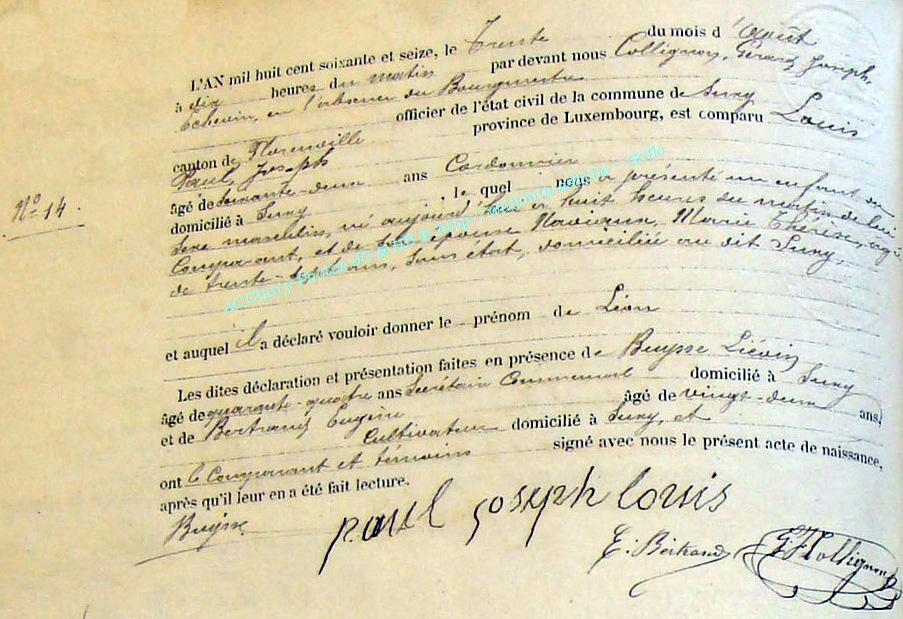 L'AN mil huit cent soixante et seize, le Trente du mois d'Août
à dix heures du matin par devant nous Collignon, Gérard Joseph,
Echevin, en l'absence du Bourgmestre
officier de l'état civil de la commune de Suny
canton de Florenville province de Luxembourg, est comparu Louis
Paul Joseph
âgé de soixante-deux ans Cordonnier
Nº 14.
domicilié à Suny, lequel nous a présenté un enfant du
sexe masculin, né aujourd'hui à huit heures du matin de lui
Comparant, et de son épouse Marie Thérèse, âgée
de trente-sept ans, sans état, domiciliée au dit Suny.
et auquel il a déclaré vouloir donner le prénom de Léon
Les dites déclaration et présentation faites en présence de Buysse Liévin
âgé de quarante-quatre ans Secrétaire Communal domicilié à Suny
et de Bertrand Eugène âgé de vingt-deux ans,
Cultivateur domicilié à Suny, et
ont le Comparant et témoins signé avec nous le présent acte de naissance,
après qu'il leur en a été fait lecture.
Buysse
paul joseph louis
E. Bertrand
GJ Collignon